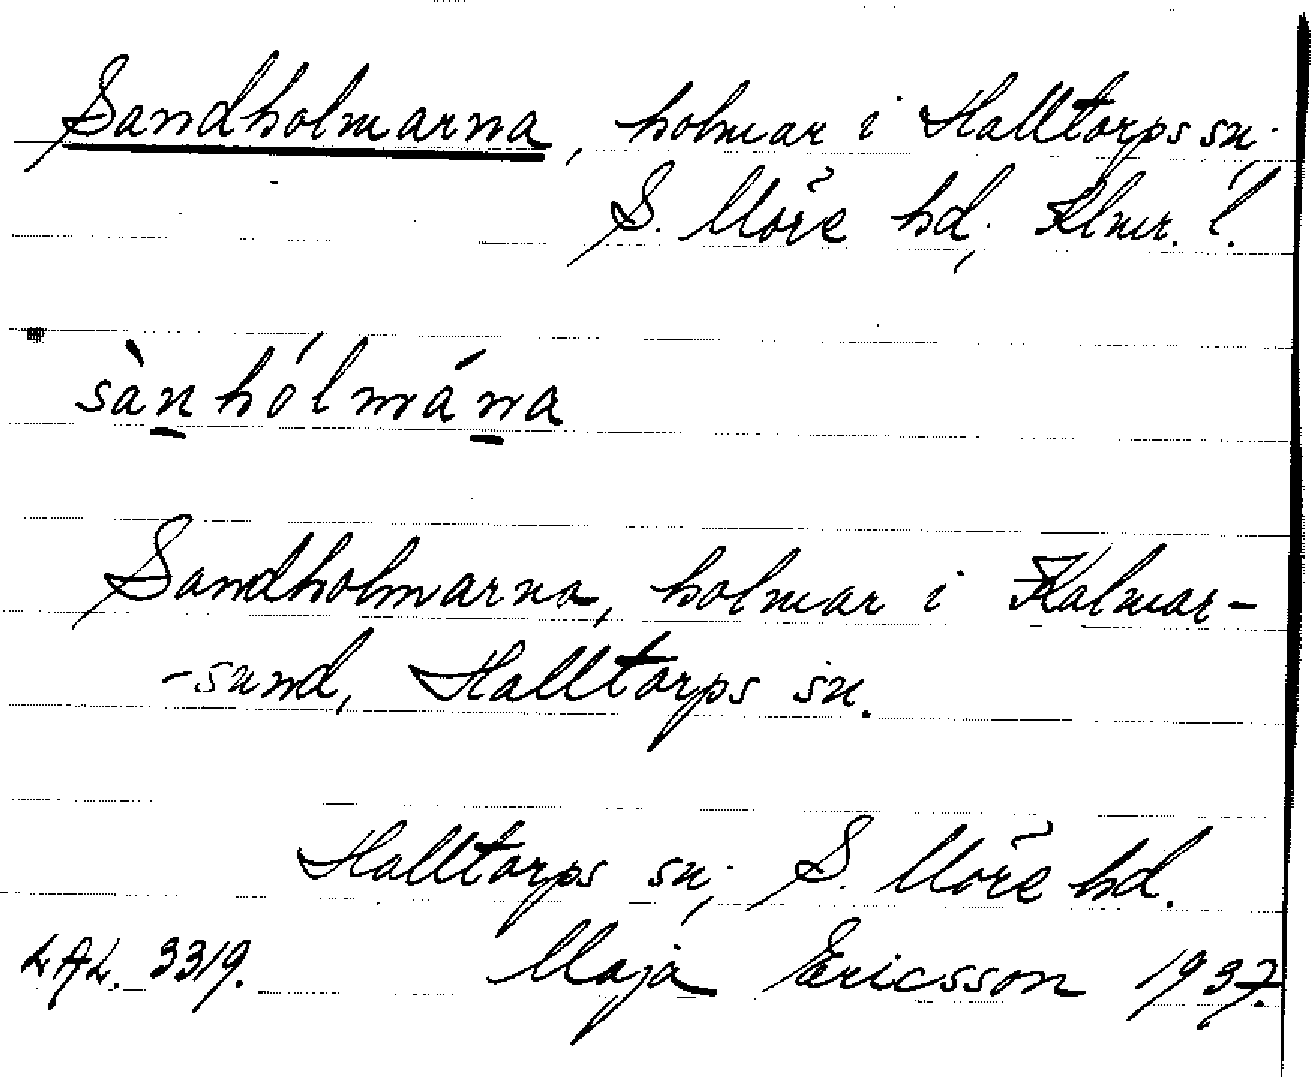 Sandholmarna, holmar i Halltorps sn.,
S. Möre hd., Klmr. l.
sànhólmána
Sandholmarna, holmar i Kalmar-
-sund, Halltorps sn.
Halltorps sn., S. Möre hd.
LAL. 3319. Maja Ericsson 1937.